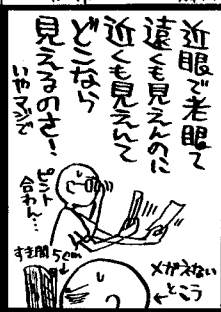 近眼で老眼て
遠くも見えんのに
近くも見えんて
どこなら
見えるのさ!
いやマジで
ピント
合わん…
すき間5cm
メガネない
とこう